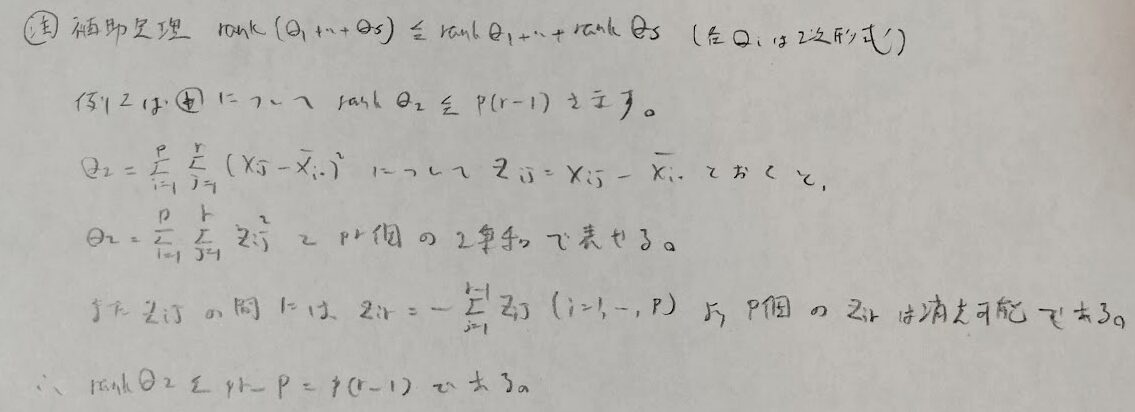 (注) 補助定理 rank (Q₁+…+Qs) ≦ rank Q₁+…+rank Qs (各Qᵢは2次形式)
例えば④について rank Q₂ ≦ p(r-1) を示す。
Q₂ = Σ_{i=1}^{p} Σ_{j=1}^{r} (Xij - X̄i.)² について Zij = Xij - X̄i. とおくと,
Q₂ = Σ_{i=1}^{p} Σ_{j=1}^{r} Zij² と pr個の2乗和で表せる。
また Zij の間には、Zir = - Σ_{j=1}^{r-1} Zij (i=1,…,p) より p個の Zir は消去可能である。
∴ rank Q₂ ≦ pr - p = p(r-1) である。